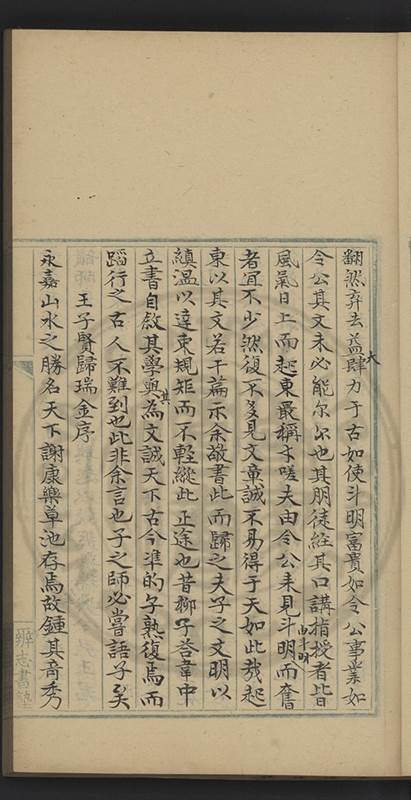 翻然弃去益大肆力于古如使斗明富貴如令公事業如
令公其文未必能尔尔也其朋徒經其口講指授者皆
風氣日上而起東最稱卞嗟夫由令公未見斗明而奮由斗明
者宜不少然復不多見文章誠不易得于天如此哉起
東以其文若干篇示余敬書此而歸之夫子之文明以
縝溫以達束規矩而不輕縱此正途也昔柳子荅韋中
立書自敘其學與其為文誠天下古今準的子熟復焉而
蹈行之古人不難到也此非余言也子之師必嘗語子矣
王子賢歸瑞金序
永嘉山水之勝名天下謝康樂草池存焉故鍾其奇秀
辨志書塾